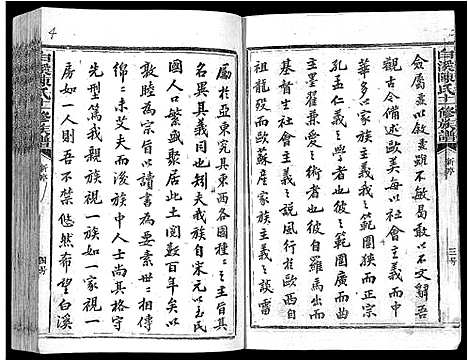 白溪陳氏十二修族譜
新序
三號
僉屬叙以叙意跳不敏曷敢以不文辭吾
觀古今備述歐美每以社會主義而中
華多以家族主義之範圍狹而正宗
孔孟仁義之學者也彼之範圍廣而崇
主墨翟兼愛之術者也彼自羅馬出而
基督生社會主義之說風行於歐西自
祖龍殁而歐蘇產家族主義之談雷
厲於亞東究其東西各國種種之
名異其義則一也制夫我族自宋元以玉民
國人口繁盛聚居此土閱數百年矣以
敦睦為宗旨以讀書為要素世世相傳
綿綿未艾夫而後族中人士尚其恪守
先型篤我親族視一族如一家視一
房如一人則吾不禁悠然希望白溪
白溪陳氏十二修族譜
新序
四號
4